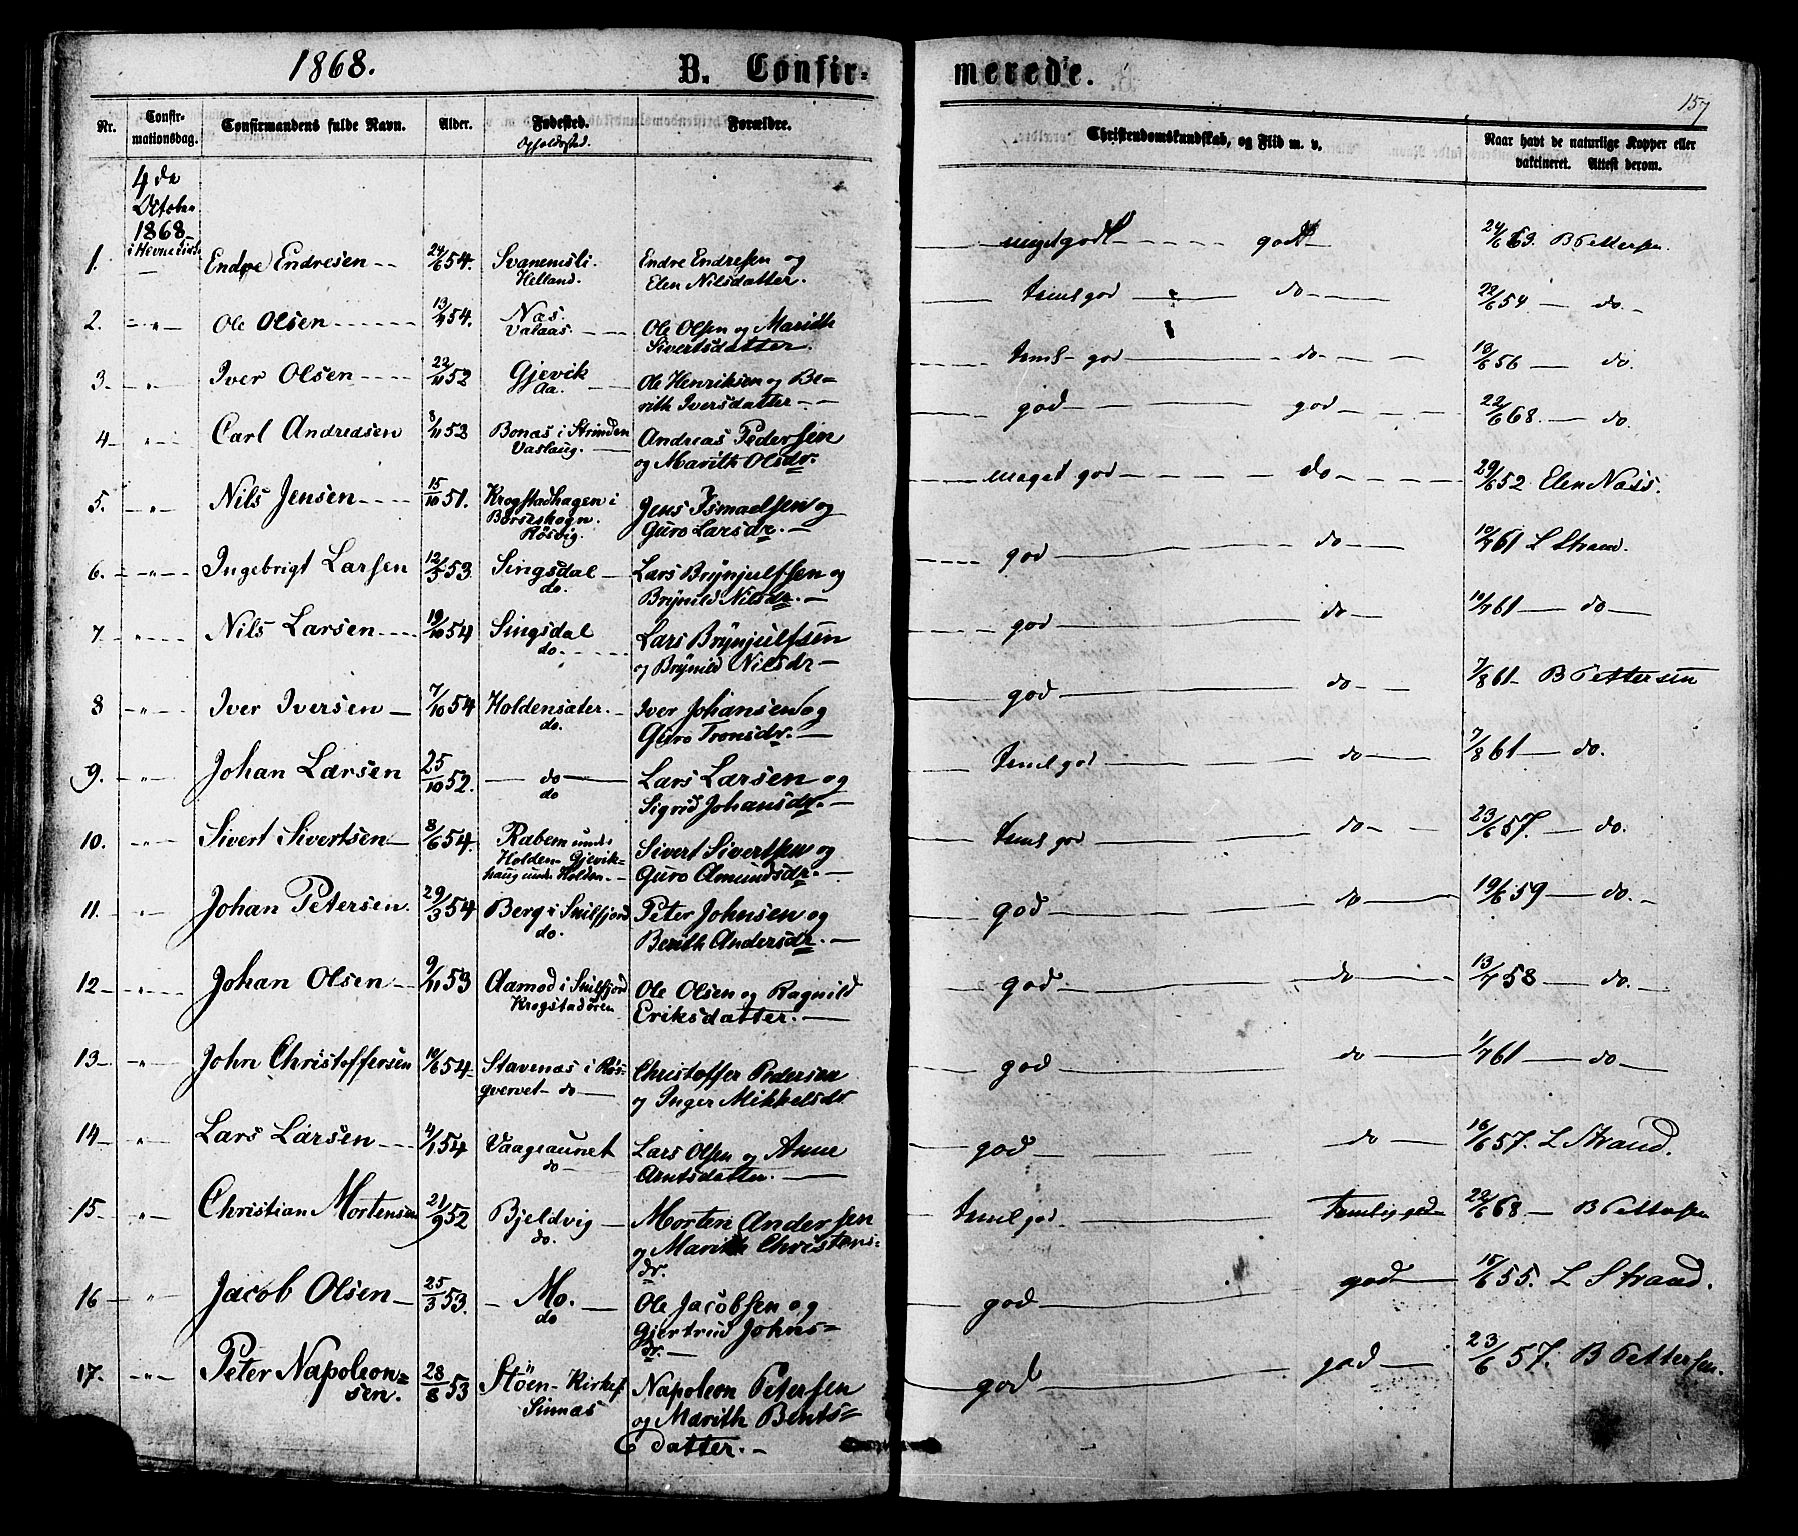 1868.
B. Confir-
merede.
157
Nr.
Confir-
mationsdag.
Confirmandens fulde Navn.
Alder.
Fødested.
Opholdsted.
Forældre.
Christendomskundskab, og Flid m. v.
Naar havt de naturlige Kopper eller
vakcineret. Attest derom.
4de
October
1868
i Hevne
1. Endre Endresen 24/6 54. Svanemsli. Endre Endresen og meget godt godt 24/6 69. B Pettersen
Helland. Elen Nilsdatter.
2. " Ole Olsen 54. Næs. Ole Olsen og Marith teml god do 22/6 54 do.
Valaas. Sivertsdatter.
3 " Iver Olsen 22/11 52 Gjevik Ole Henriksen og Be- teml god do 13/6 56 do.
Aa. rith Iversdatter
4 " Carl Andreasen 8/11 53 Bonæs i Strinden Andreas Pedersen god god 22/6 68. do.
Vaslaug. og Marith Olsdr.
5. " Nils Jensen 15/10 51. Krogstadhagen i Jens Ismaelsen og meget god do 29/6 52 Elen Næss.
Børseskogn. Guro Larsdr.
Røsvig.
6. " Ingebrigt Larsen 12/5 53. Singsdal Lars Brynjulfsen og god do 10/7 61 L Strand.
do. Brynild Nilsdr.
7. " Nils Larsen 19/10 54 Singsdal Lars Brynjulfsen god do 10/7 61 do
do. og Brynild Nilsdr
8 " Iver Iversen 7/10 54 Holdensæter. Iver Johansen og god do 7/8 61 B Pettersen
do. Guro Tronsdr.
9. " Johan Larsen 25/10 52. do Lars Larsen og teml god do 7/8 61 do.
do Sigrid Johansdr.
10. " Sivert Sivertsen 8/6 54. Rabem under Sivert Sivertsen og teml god do 23/6 57. do.
Holden Gjevik- Guro Amundsdr.
haug under Holden.
11. " Johan Petersen. 29/3 54 Berg i Snilfjord Peter Johnsen og god do 19/6 59 do.
do. Berith Andersdr.
12 " Johan Olsen 9/11 53 Aamod i Snilfjord Ole Olsen og Ragnild god do 13/7 58 do.
Krogstadøren Eriksdatter.
13 " John Christoffersen 10/6 54 Stavenæs i Røs- Christoffer Pedersen god do 1/7 61 do
gvervet do og Inger Mikkelsdr
14 " Lars Larsen 4/1 54 Vaageaunet Lars Olsen og Anne god do 16/6 57. L Strand.
do Arntsdatter.
15. " Christian Mortensen 21/9 52 Bjeldvig Morten Andersen teml god temlig god 22/6 68. B Pettersen
do. og Marith Christens-
dr.
16 " Jacob Olsen 25/3 53. Mo. Ole Jacobsen og god god 15/6 55. L Strand.
do Gjertrud Johns-
dr.
17. " Peter Napoleon- 28/8 53 Støen Kirkes Napoleon Petersen god god 23/6 57. B Pettersen.
sen. Sinnæs og Marith Bents-
datter.